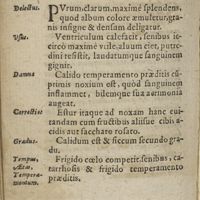 Delectus. PVrum, clarum, maximè splendens,
quod album colore æmuletur, gra-
nis insigne & densum deligatur.
Usus. Ventriculum calefacit, senibus it-
circò maximè vtile, aluum ciet, putre-
dini resistit, laudatumque sanguinem
gignit.
Damna Calido temperamento præditis cu-
primis noxium est, quòd sanguinem
inflammet, bilemque sua aerimonia
augeat.
Correctio: Estur itaque ad noxam hanc cui-
tandam cum fructibus aliisue cibis a-
cidis aut sacchare rosato.
Gradus. Calidum est & siccum secundo gra-
du.
Tempus, Frigido cœlo competit, senibus, ca-
ætas, tarrhosis & frigido temperamento
Tempera- præditis.
mentum.